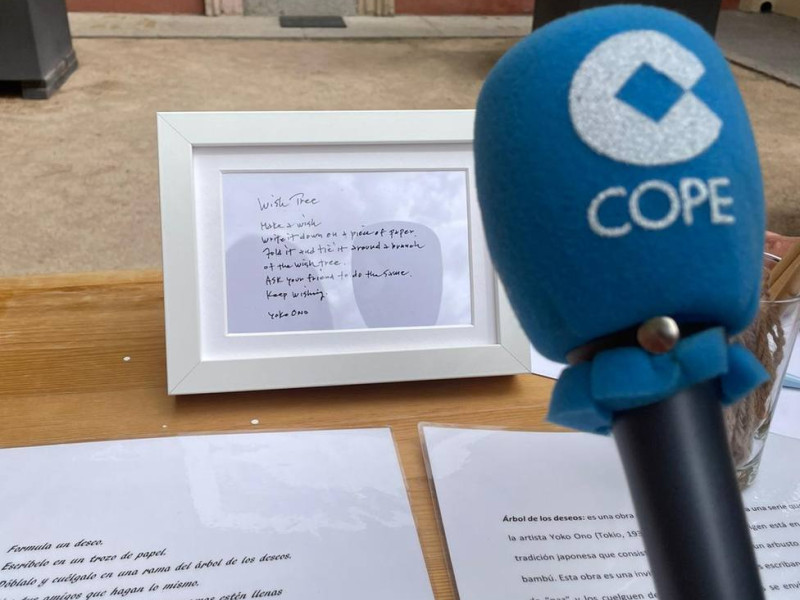 Wish Tree
Make a wish
Write it down on a piece of paper
Fold it and tie it around a branch
of the wish tree.
Ask your friend to do the same.
Keep wishing.
Yoko Ono
COPE
Formula un deseo.
Escríbelo en un trozo de papel.
Dóblalo y cuélgalo en una rama del árbol de los deseos.
tus amigos que hagan lo mismo.
estén llenas
Árbol de los deseos: es una obra
una serie
la artista Yoko Ono (Tokio,
está en
tradición japonesa que
un arbusto
bambú. Esta obra es una
escriban
y los cuelguen
se